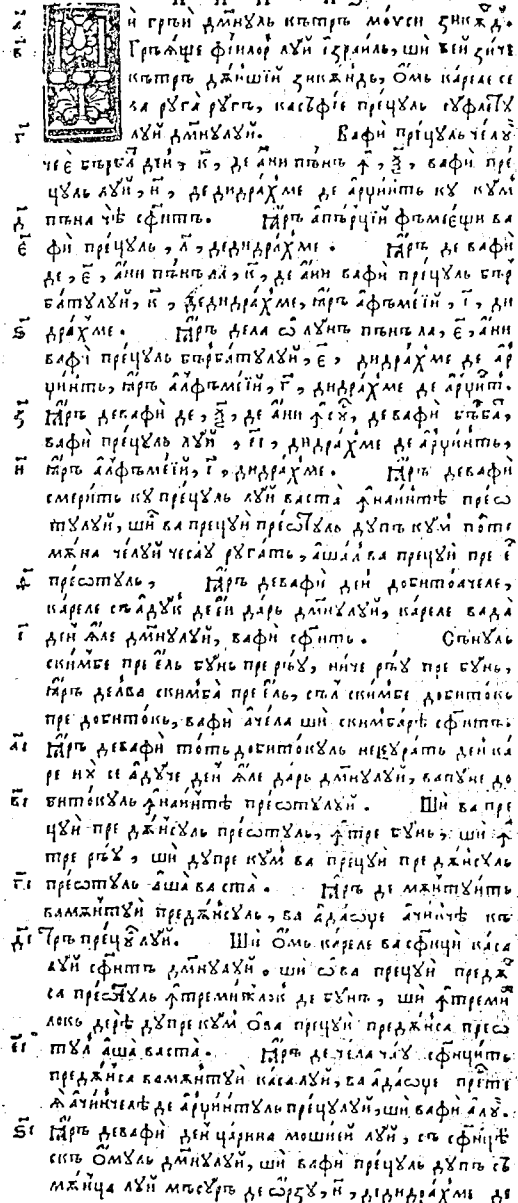 а҃ Ѝ грѣѝ дм҃нꙋль кѣтрѣ мѡѵси зикѫ́д.
в҃ Грѣѧ́ще фїилѡр лꙋй і҆зра́иль, шѝ вей зи́че
кѣтрѣ дѫ́ншїй зикѫ́ндь, Ѻ҆мь ка́реле се
ва рꙋга̀ рꙋгъ, ка съ фїе пре́цꙋль сꙋ́флетꙋ
г҃ лꙋй дм҃нꙋлꙋй. Ва фѝ пре́цꙋль че́лꙋ
че є҆ бърба́т дей, к҃, де а҆́ни пѫ́нъ ꙟ҆, ѯ҃, ва фѝ пре́
цꙋль лꙋй, н҃, де дидра́хме де арџи́нть кꙋ кꙋм
д҃ пъна чѣ сфи́нтъ. Ꙗ҆ръ а҆ пѣрцїй фъме́єщи ва
е҃ фѝ пре́цꙋль, л҃, де дидра́хме. Ꙗ҆ръ де ва фѝ
де, є҃, а҆́ни пѫ́нъ ла, к҃, де а҆́ни ва фѝ пре́цꙋль бър
ба́тꙋлꙋй, к҃, де дидра́хме, ꙗ҆ръ а҆ фъме́їй, і҃, ди
ѕ҃ дра́хме. Ꙗ҆ръ де ла ѡ҆ лꙋнъ пѫ́нъ ла, є҃, а҆́ни
ва фѝ пре́цꙋль бърба́тꙋлꙋй, є҃, дидра́хме де ар
џи́нть, ꙗ҆ръ а҆л фъме́їй, г҃, дидра́хме де арџи́нт.
з҃ Ꙗ҆ръ де ва фѝ де, ѯ҃, де а҆́ни ꙟ҆ сꙋс, де ва фѝ бърба́т,
ва фѝ пре́цꙋль лꙋй, є҃і, дидра́хме де арџи́нть,
и҃ ꙗ҆ръ а҆л фъме́їй, і҃, дидра́хме. Ꙗ҆ръ де ва фѝ
смери́ть кꙋ пре́цꙋль лꙋй ва ста̀ ꙟ҆наи́нтѣ пре́ѡ
тꙋлꙋй, шѝ ва прецꙋѝ пре́ѡтꙋль дꙋпъ кꙋм по́те
мѫ́на че́лꙋй че с’а́ꙋ рꙋга́ть, а҆ша̀ л ва прецꙋѝ пре є҆л
ѳ҃ пре́ѡтꙋль, Ꙗ҆ръ де ва фѝ дейн добитоа́челе,
ка́реле съ а҆дꙋ́к дейн дарь дм҃нꙋлꙋй, ка́реле ва да̀
і҃ дейн а҆ле дм҃нꙋлꙋй, ва фѝ сфи́нть. Съ нꙋль
ски́мбе пре є҆ль бꙋнь пре рѣꙋ, ни́че рѣꙋ пре бꙋнь,
ꙗ҆ръ де л ва скимба̀ пре є҆ль, съ л ски́мбе добито́кь
пре добито́кь, ва фѝ а҆че́ла шѝ скимба́рѣ сфи́нтъ.
а҃і Ꙗ҆ръ де ва фѝ то́ть добито́кꙋль некꙋра́ть дейн ка́
ре нꙋ се а҆дꙋ́че дейн а҆ле дарь дм҃нꙋлꙋй, ва пꙋ́не до
в҃і бито́кꙋль ꙟ҆наи́нтѣ пре́ѡтꙋлꙋй. Шѝ ва пре
цꙋѝ пре дѫ́нсꙋль пре́ѡтꙋль, ꙟ҆тре бꙋнь, шѝ ꙟ҆
тре рѣꙋ, шѝ дꙋпре кꙋм ва прецꙋѝ пре дѫ́нсꙋль
г҃і пре́ѡтꙋль а҆ша̀ ва ста̀. Ꙗ҆ръ де мѫнтꙋи́нть
ва мѫнтꙋѝ пре дѫ́нсꙋль, ва а҆да́ѡџе а҆чи́нчѣ къ
д҃і тръ пре́цꙋлꙋй. Шѝ Ѻ҆мь ка́реле ва сфинцѝ ка́са
лꙋй сфи́нтъ дм҃нꙋлꙋй. шѝ ѡ҆ ва прецꙋѝ пре дѫ́н
са пре́ѡтꙋль ꙟ҆тре мижло́к де бꙋнъ, шѝ ꙟ҆тре ми
локь де рѣ дꙋпре кꙋм ѡ҆ ва прецꙋѝ пре дѫ́нса пре́ѡ
е҃і тꙋл а҆ша̀ ва ста̀. Ꙗ҆ръ де че́ла ч’а́ꙋ сфинци́ть
пре дѫ́нса ва мѫнтꙋѝ ка́са лꙋй, ва а҆да́ѡџе пре́сте
ꙗ҆ а҆чи́нчелѣ де арџи́нтꙋль пре́цꙋлꙋй, шѝ ва фѝ а҆лꙋ́й.
ѕ҃і Ꙗ҆ръ де ва фѝ дейн ца́рина мошїей лꙋй, съ сфинцѣ
скъ Ѻ҆мꙋль дм҃нꙋлꙋй, шѝ ва фѝ пре́цꙋль дꙋпъ съ
мѫ́нца лꙋй мъсꙋ́ръ де ѡ҆рзꙋ, н҃, де дидра́хме де